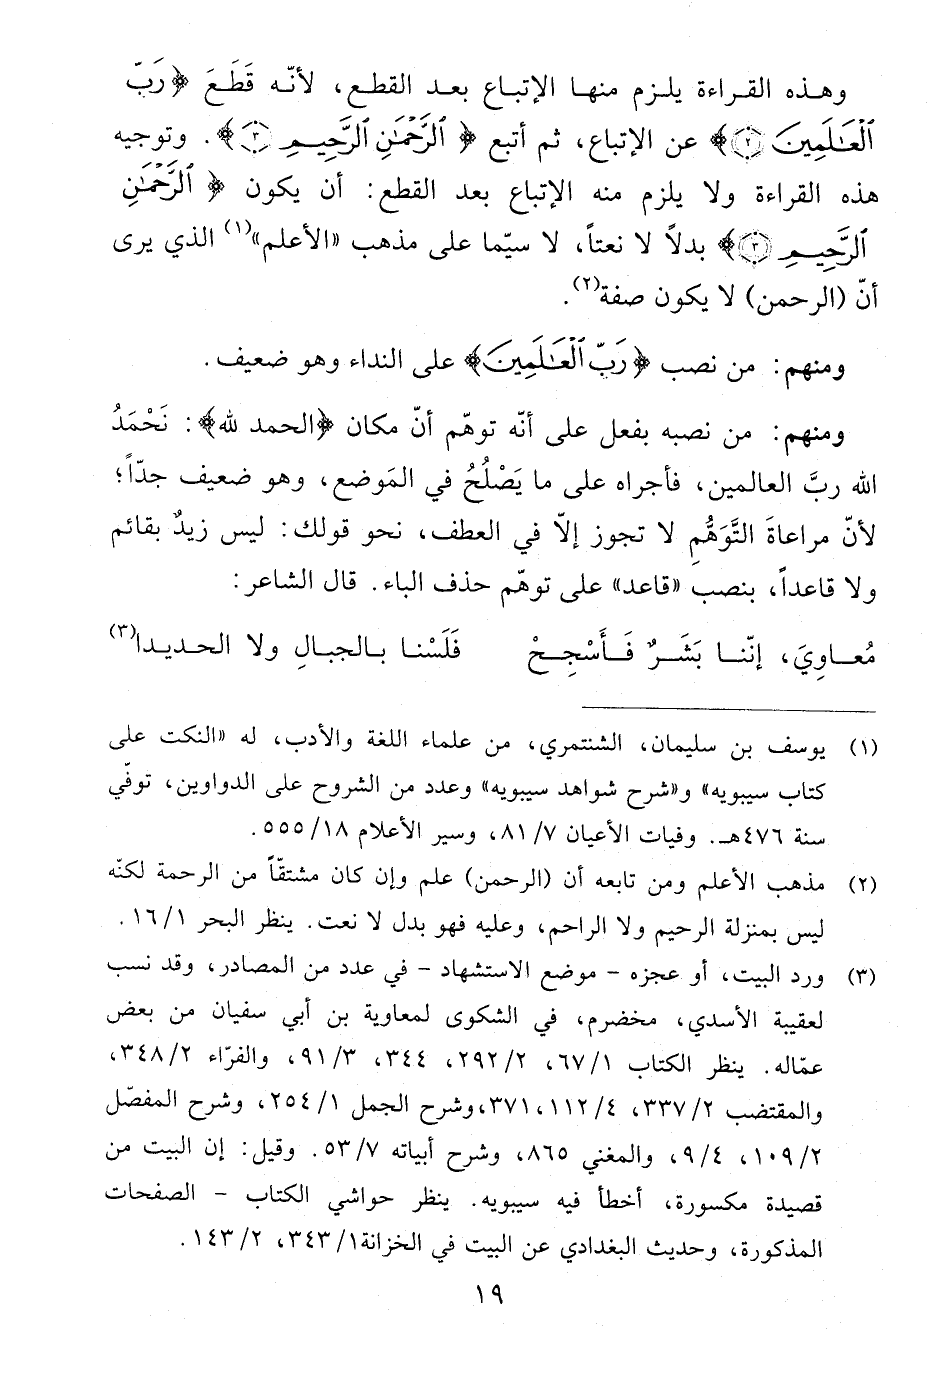 وهـذه القـراءة يلـزم منهـا الإتبـاع بعـد القطـع، لأنّـه قَطَعَ ﴿رَبِّ
ٱلْعَٰلَمِينَ ۝٢﴾ عن الإتباع، ثم أتبع ﴿ٱلرَّحْمَٰنِ ٱلرَّحِيمِ ۝٣﴾. وتوجيه
هذه القراءة ولا يلزم منه الإتباع بعد القطع: أن يكون ﴿ٱلرَّحْمَٰنِ
ٱلرَّحِيمِ ۝٣﴾ بدلاً لا نعتاً، لا سيّما على مذهب «الأعلم»(١) الذي يرى
أنّ (الرحمن) لا يكون صفة(٢).
ومنهم: من نصب ﴿رَبِّ ٱلْعَٰلَمِينَ﴾ على النداء وهو ضعيف.
ومنهم: من نصبه بفعل على أنّه توهّم أنّ مكان ﴿الحمد لله﴾: نَحْمَدُ
الله ربَّ العالمين، فأجراه على ما يَصْلُحُ في المَوضع، وهو ضعيف جدّاً؛
لأنّ مراعاةَ التَّوَهُّمِ لا تجوز إلاّ في العطف، نحو قولك: ليس زيدٌ بقائم
ولا قاعداً، بنصب «قاعد» على توهّم حذف الباء. قال الشاعر:
مُعـاوِيَ، إنّنـا بَشَـرٌ فَـأَسْجِـحْ فَلَسْنـا بـالجبـالِ ولا الحـديـدا(٣)
(١) يوسف بن سليمان، الشنتمري، من علماء اللغة والأدب، له «النكت على
كتاب سيبويه» و«شرح شواهد سيبويه» وعدد من الشروح على الدواوين، توفّي
سنة ٤٧٦هـ. وفيات الأعيان ٨١/٧، وسير الأعلام ٥٥٥/١٨.
(٢) مذهب الأعلم ومن تابعه أن (الرحمن) علم وإن كان مشتقّاً من الرحمة لكنّه
ليس بمنزلة الرحيم ولا الراحم، وعليه فهو بدل لا نعت. ينظر البحر ١٦/١.
(٣) ورد البيت، أو عجزه - موضع الاستشهاد - في عدد من المصادر، وقد نسب
لعقيبة الأسدي، مخضرم، في الشكوى لمعاوية بن أبي سفيان من بعض
عمّاله. ينظر الكتاب ٦٧/١، ٢٩٢/٢، ٣٤٤، ٩١/٣، والفرّاء ٣٤٨/٢،
والمقتضب ٣٣٧/٢، ١١٢/٤، ٣٧١، وشرح الجمل ٢٥٤/١، وشرح المفصّل
١٠٩/٢، ٩/٤، والمغني ٨٦٥، وشرح أبياته ٥٣/٧. وقيل: إن البيت من
قصيدة مكسورة، أخطأ فيه سيبويه. ينظر حواشي الكتاب - الصفحات
المذكورة، وحديث البغدادي عن البيت في الخزانة ٣٤٣/١، ١٤٣/٢.
١٩